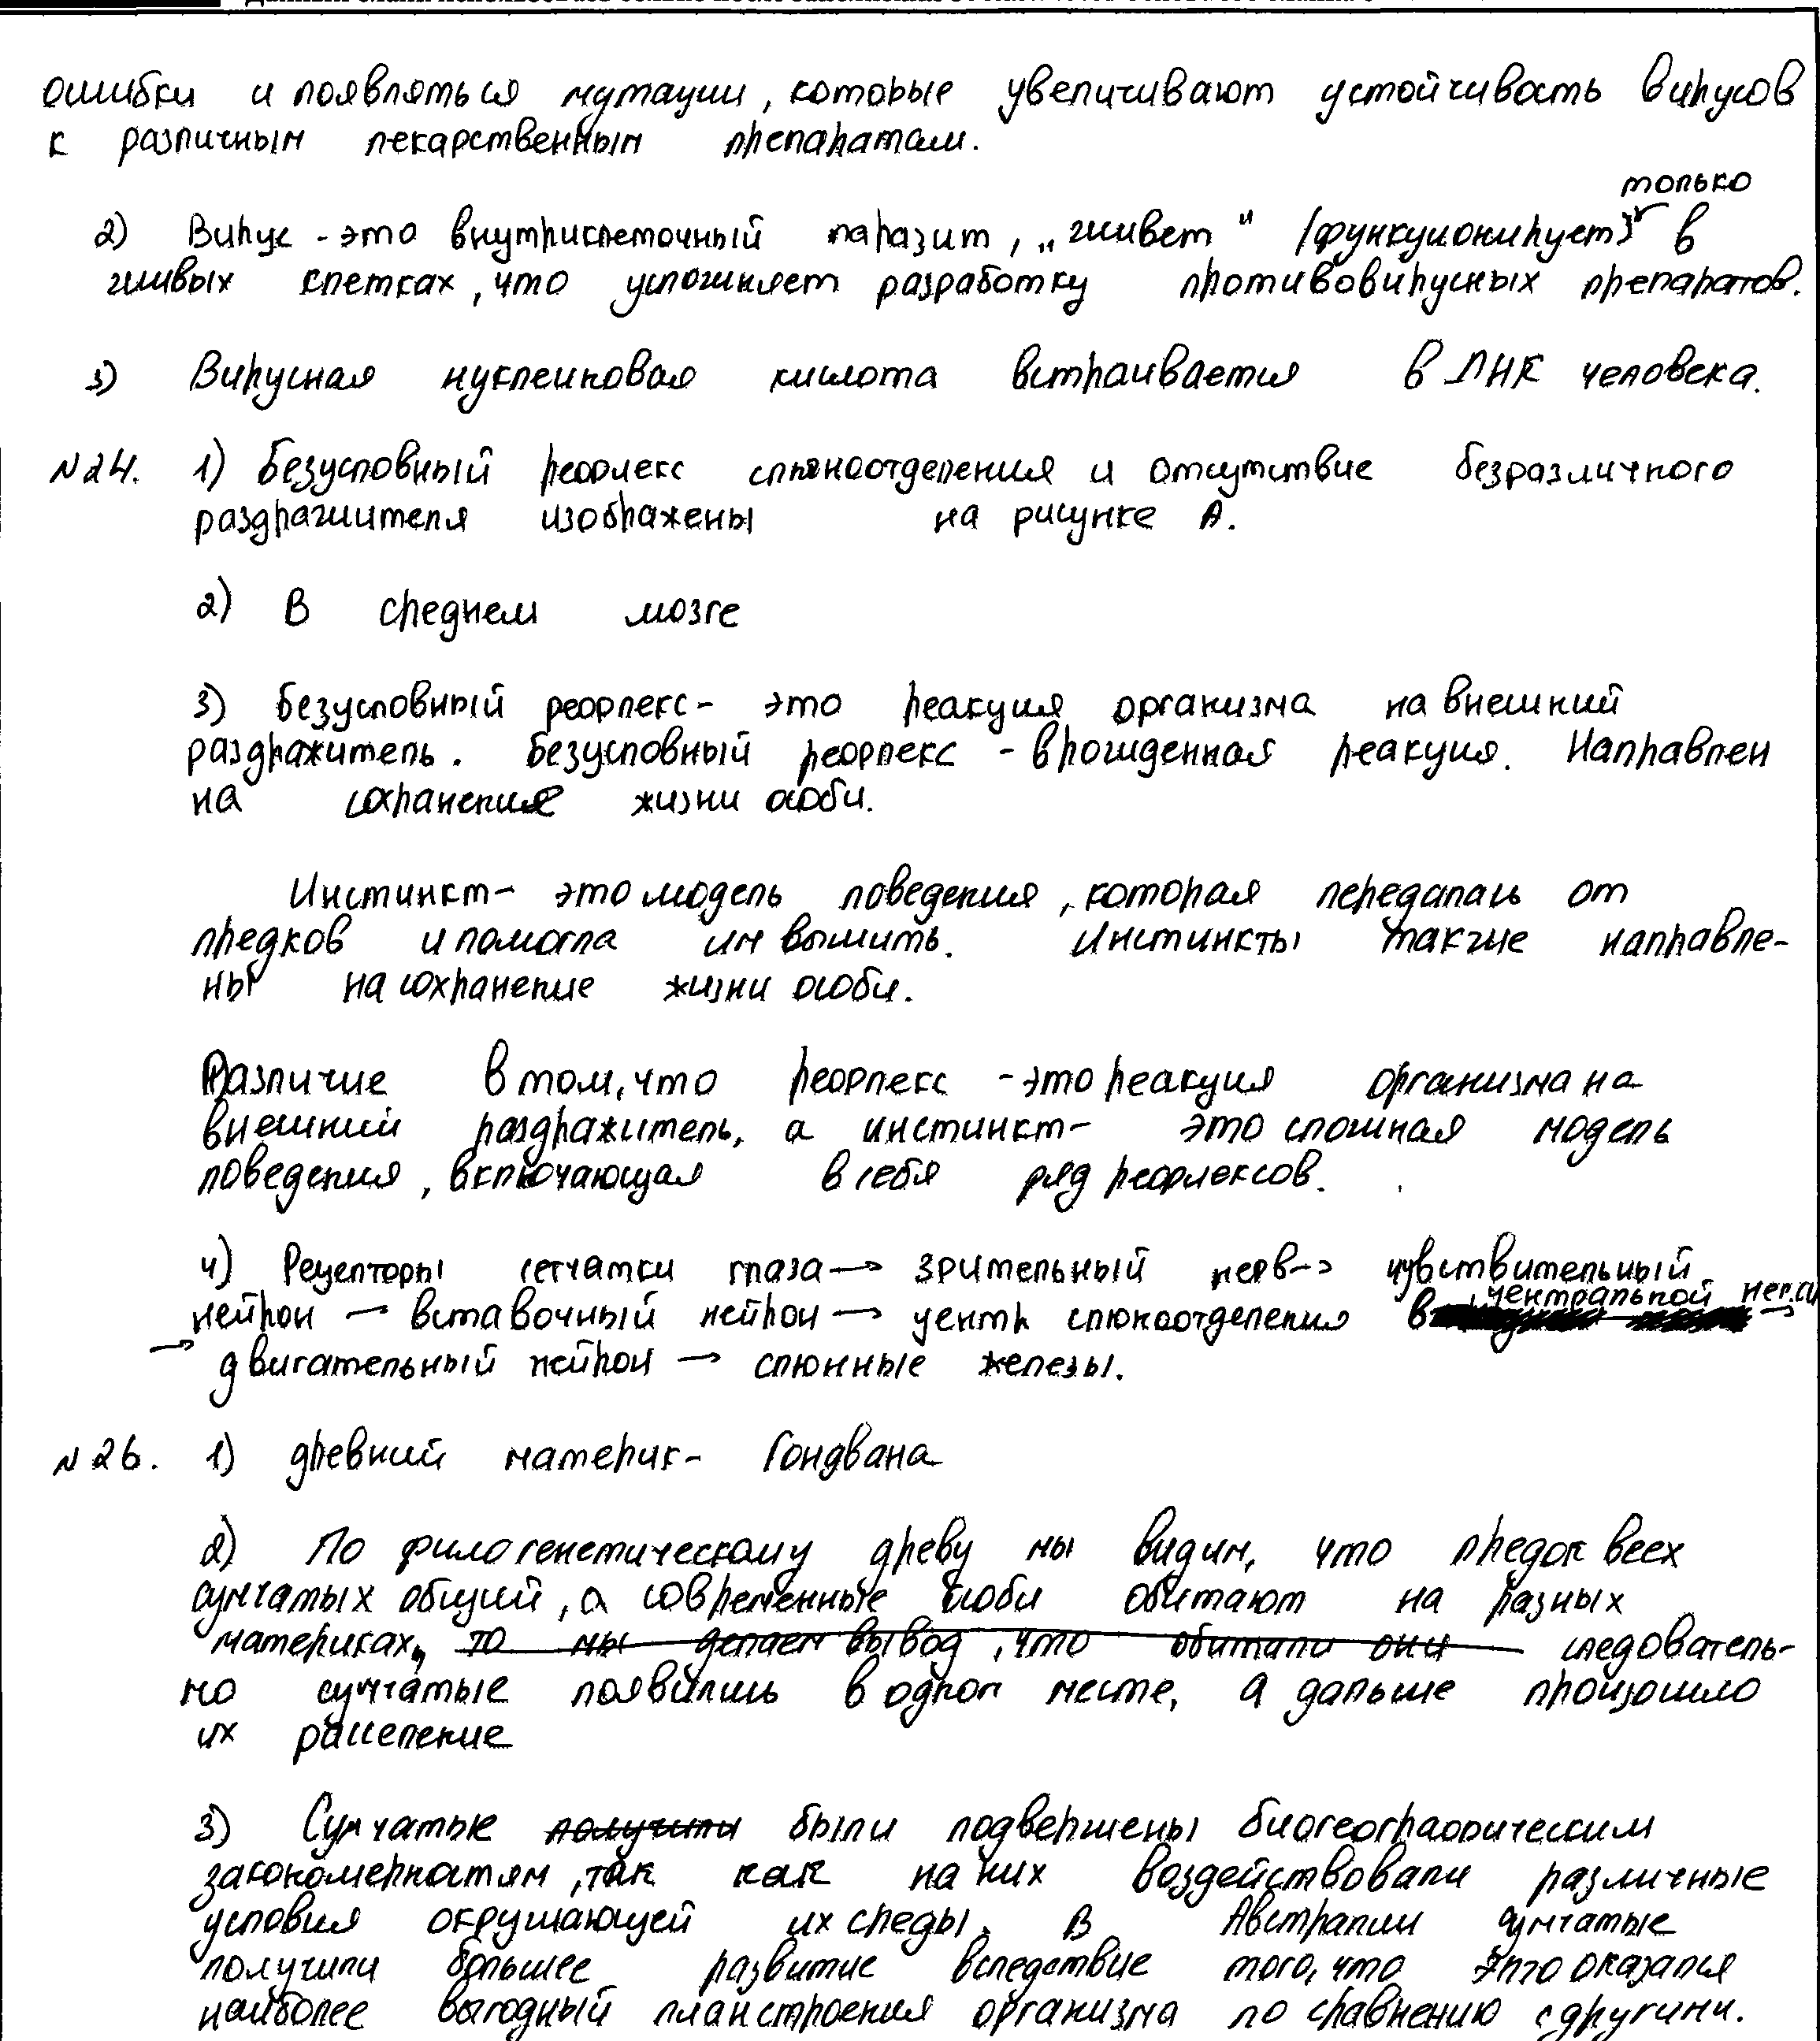 ошибки и появляться мутации, которые увеличивают устойчивость вирусов
к различным лекарственным препаратам.
только
2) Вирус - это внутриклеточный паразит, „живет" (функционирует) в
живых клетках, что усложняет разработку противовирусных препаратов.
3) Вирусная нуклеиновая кислота встраивается в ДНК человека.
№24. 1) Безусловный рефлекс слюноотделения и отсутствие безразличного
раздражителя изображены на рисунке А.
2) В среднем мозге
3) Безусловный рефлекс - это реакция организма на внешний
раздражитель. Безусловный рефлекс - врожденная реакция. Направлен
на сохранение жизни особи.
Инстинкт - это модель поведения, которая передалась от
предков и помогла им выжить. Инстинкты также направле-
ны на сохранение жизни особи.
Различие в том, что рефлекс - это реакция организма на
внешний раздражитель, а инстинкт - это сложная модель
поведения, включающая в себя ряд рефлексов.
4) Рецепторы сетчатки глаза → зрительный нерв → чувствительный
нейрон → вставочный нейрон → центр слюноотделения в центральной →
→ двигательный нейрон → слюнные железы.
№26. 1) древний материк - Гондвана
2) По филогенетическому древу мы видим, что предок всех
сумчатых общий, а современные особи обитают на разных
материках, то мы делаем вывод, что обитали они следователь-
но сумчатые появились в одном месте, а дальше произошло
их расселение
3) Сумчатые получили были подвержены биогеографическим
закономерностям, так как на них воздействовали различные
условия окружающей их среды. В Австралии сумчатые
получили большее развитие вследствие того, что этто оказался
наиболее выгодный план строения организма по сравнению с другими.